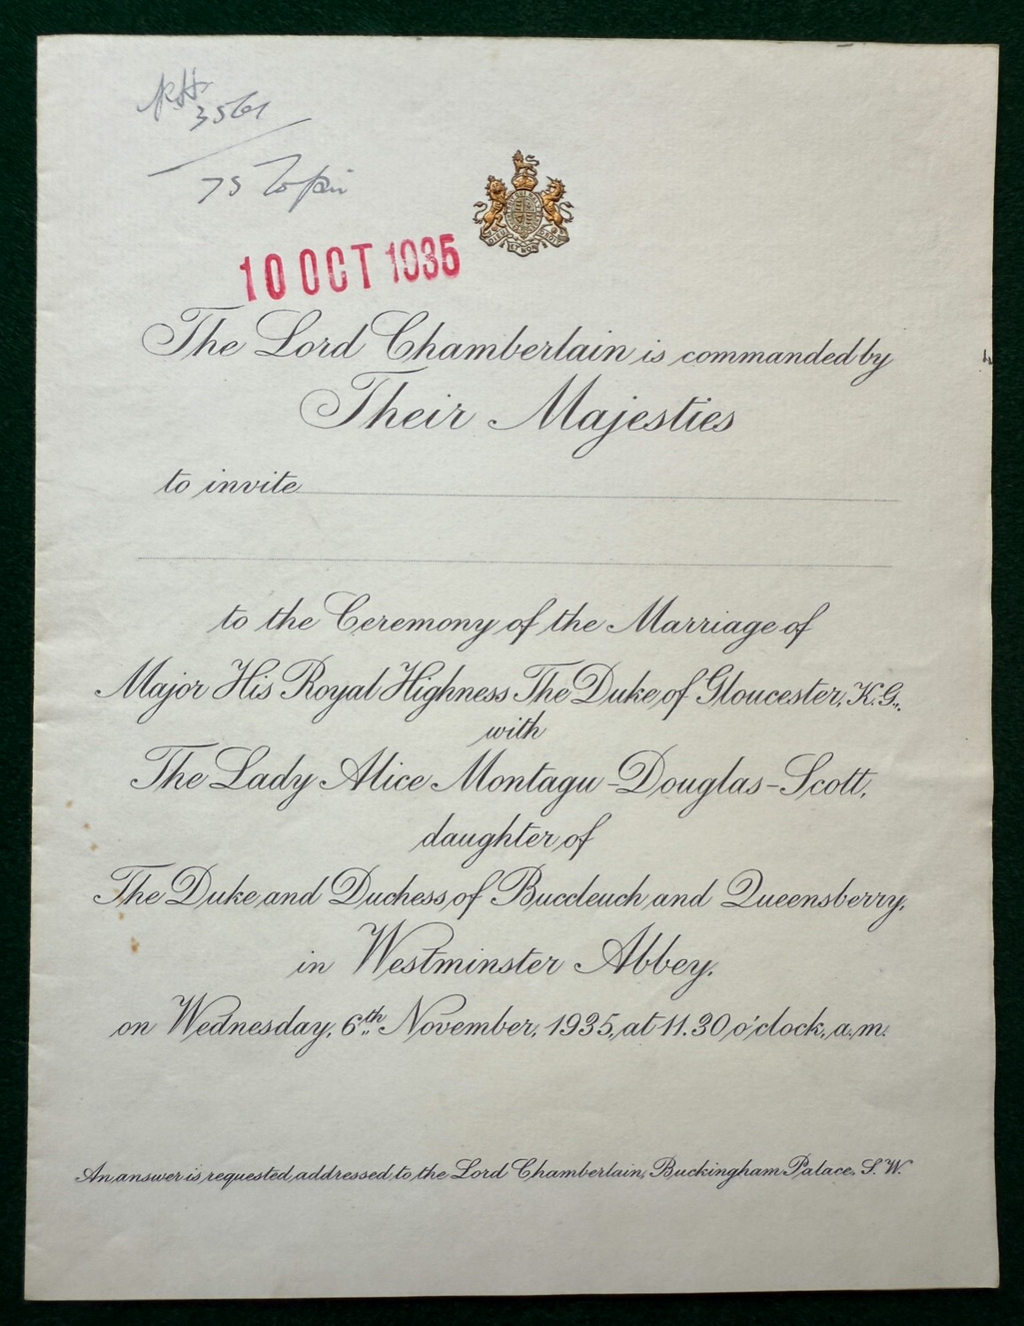 3561
75
10 OCT 1935
The Lord Chamberlain is commanded by
Their Majesties
to invite
to the Ceremony of the Marriage of
Major His Royal Highness The Duke of Gloucester, K.G.,
with
The Lady Alice Montagu-Douglas-Scott,
daughter of
The Duke and Duchess of Buccleuch and Queensberry,
in Westminster Abbey,
on Wednesday, 6th November, 1935, at 11.30 o'clock, a.m.
An answer is requested, addressed to the Lord Chamberlain, Buckingham Palace, S.W.